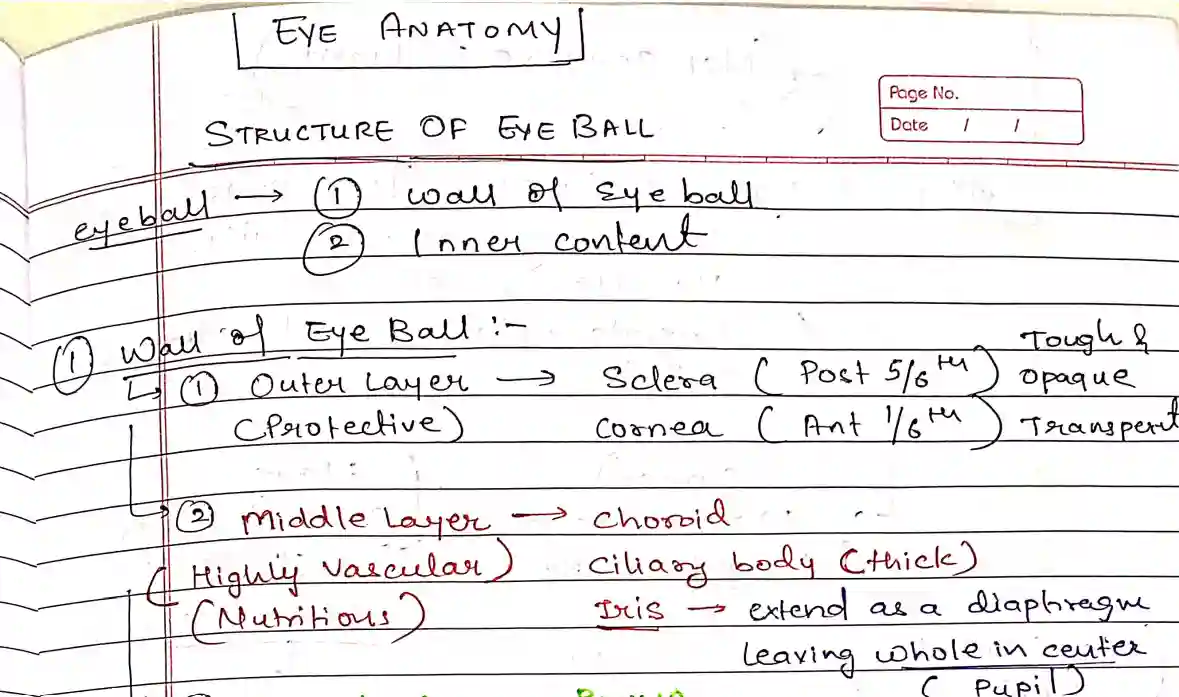 EYE ANATOMY
Page No.
Date / /
STRUCTURE OF EYE BALL
eyeball → ① wall of Eye ball
② Inner content
① Wall of Eye Ball :-
Tough &
↳ ① Outer Layer → Sclera ( Post 5/6th ) opaque
(Protective) Cornea ( Ant 1/6th ) Transperit
② Middle Layer → Choroid
( Highly Vascular ) Ciliary body (thick)
(Nutritious) Iris → extend as a diaphragm
leaving whole in center
( Pupil )